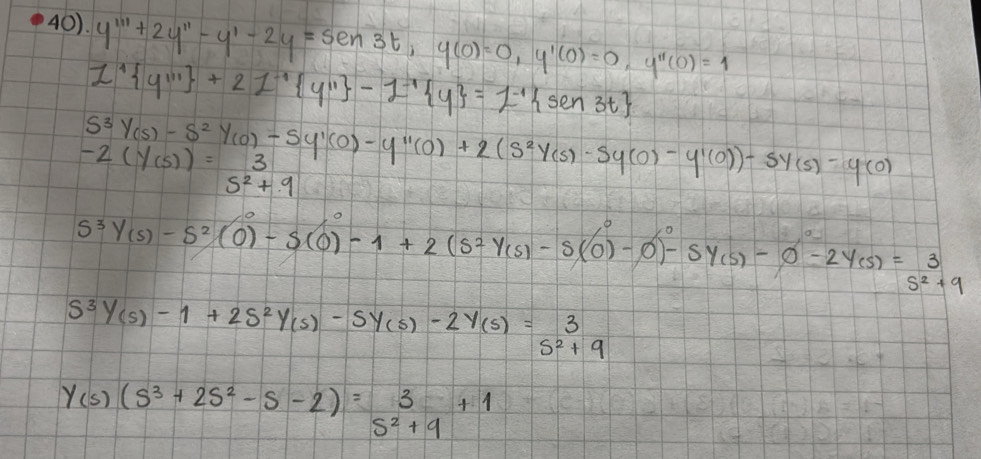 40). y''' + 2y'' - y' - 2y = sen 3t, y(0)=0, y'(0)=0, y''(0)=1
ℒ⁻¹{y'''} + 2ℒ⁻¹{y''} - ℒ⁻¹{y} = ℒ⁻¹{sen 3t}
S³Y(s) - S²Y(0) - Sy'(0) - y''(0) + 2(S²Y(s) - Sy(0) - y'(0)) - SY(s) - y(0)
-2(Y(s)) = 3
S² + 9
S³Y(s) - S²(0)⁰ - S(0)⁰ - 1 + 2(S²Y(s) - S(0)⁰ - 0⁰) - SY(s) - 0⁰ - 2Y(s) = 3
S² + 9
S³Y(s) - 1 + 2S²Y(s) - SY(s) - 2Y(s) = 3
S² + 9
Y(s)(S³ + 2S² - S - 2) = 3 + 1
S² + 9